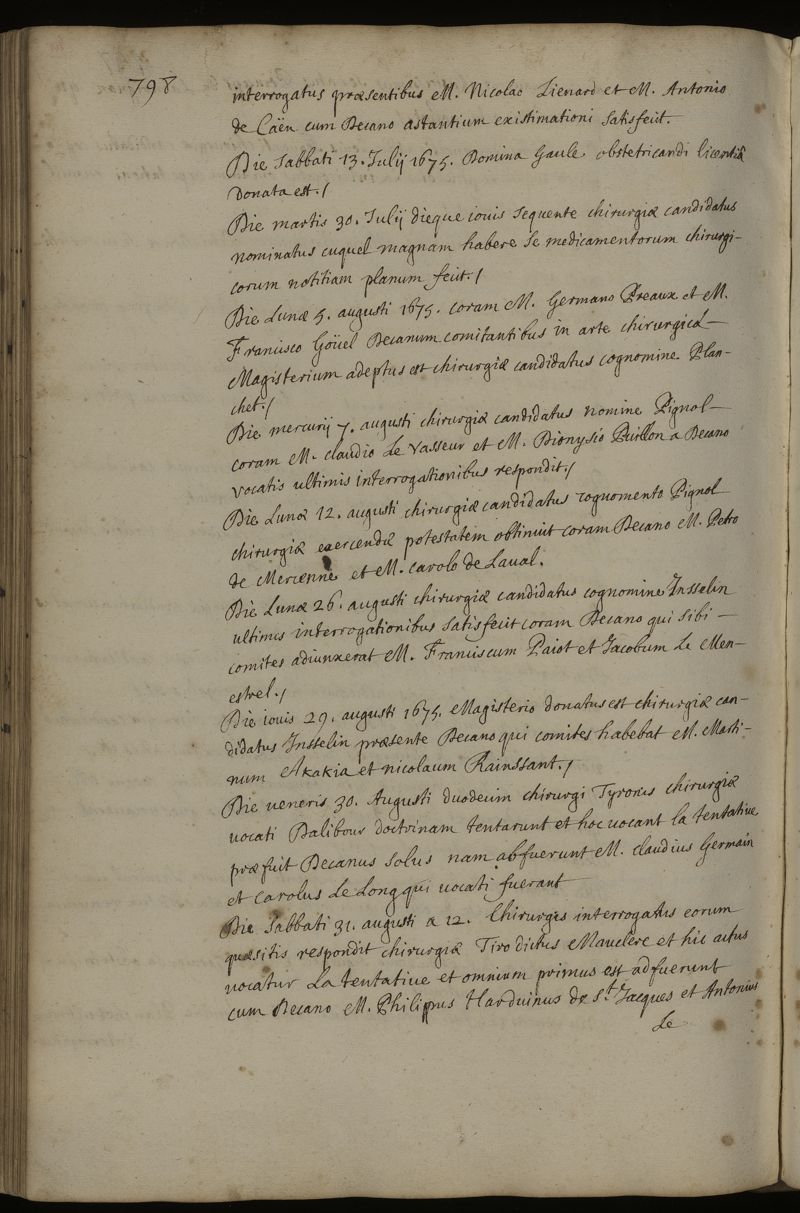 798
interrogatus præsentibus M. Nicolao Lienard et M. Antonio
de Caën cum Decano astantium existimationi satisfecit.
Die Sabbati 13. Julij 1675. Domina Gaule obstetricandi licentiâ
Donata est./
Die martis 30. Julij dieque iouis sequente chirurgiæ candidatus
nominatus cuquel magnam habere se medicamentorum chirurgi-
corum notitiam planum fecit./
Die Lunæ 5. augusti 1675. coram M. Germano Preaux et M.
Francisco Goüel Decanum comitantibus in arte chirurgicâ
Magisterium adeptus est chirurgiæ candidatus cognomine Plan-
chet./
Die mercurij 7. augusti chirurgiæ candidatus nomine Pignol
coram M. claudio Le Vasseur et M. Dionysio Puillon a Decano
vocatis ultimis interrogationibus respondit./
Die Lunæ 12. augusti chirurgiæ candidatus cognomento Pignol
chirurgiæ exercendæ potestatem obtinuit coram Decano M. Petro
de Mercenne et M. carolo de Laual.
Die Lunæ 26. augusti chirurgiæ candidatus cognomine Insselin
ultimis interrogationibus satisfecit coram Decano qui sibi
comites adiunxerat M. Franciscum Paiot et Jacobum Le Men-
estrel./
Die iouis 29. augusti 1675. Magisterio donatus est chirurgiæ can-
didatus Insselin præsente Decano qui comites habebat M. Marti-
num Akakia et nicolaum Rainssant./
Die ueneris 30. Augusti duodecim chirurgi Tyronis chirurgiæ
uocati Balibour doctrinam tentarunt et hoc uocant la tentatiue
præfuit Decanus solus nam abfuerunt M. claudius Germain
et carolus Le Long qui uocati fuerant
Die Sabbati 31. augusti a 12. Chirurgis interrogatus eorum
quæsitis respondit chirurgiæ Tiro dictus Mauclerc et hic actus
uocatur La tentatiue et omnium primus est adfuerunt
cum Decano M. Philippus Harduinus de St. Jacques et Antonius
Le